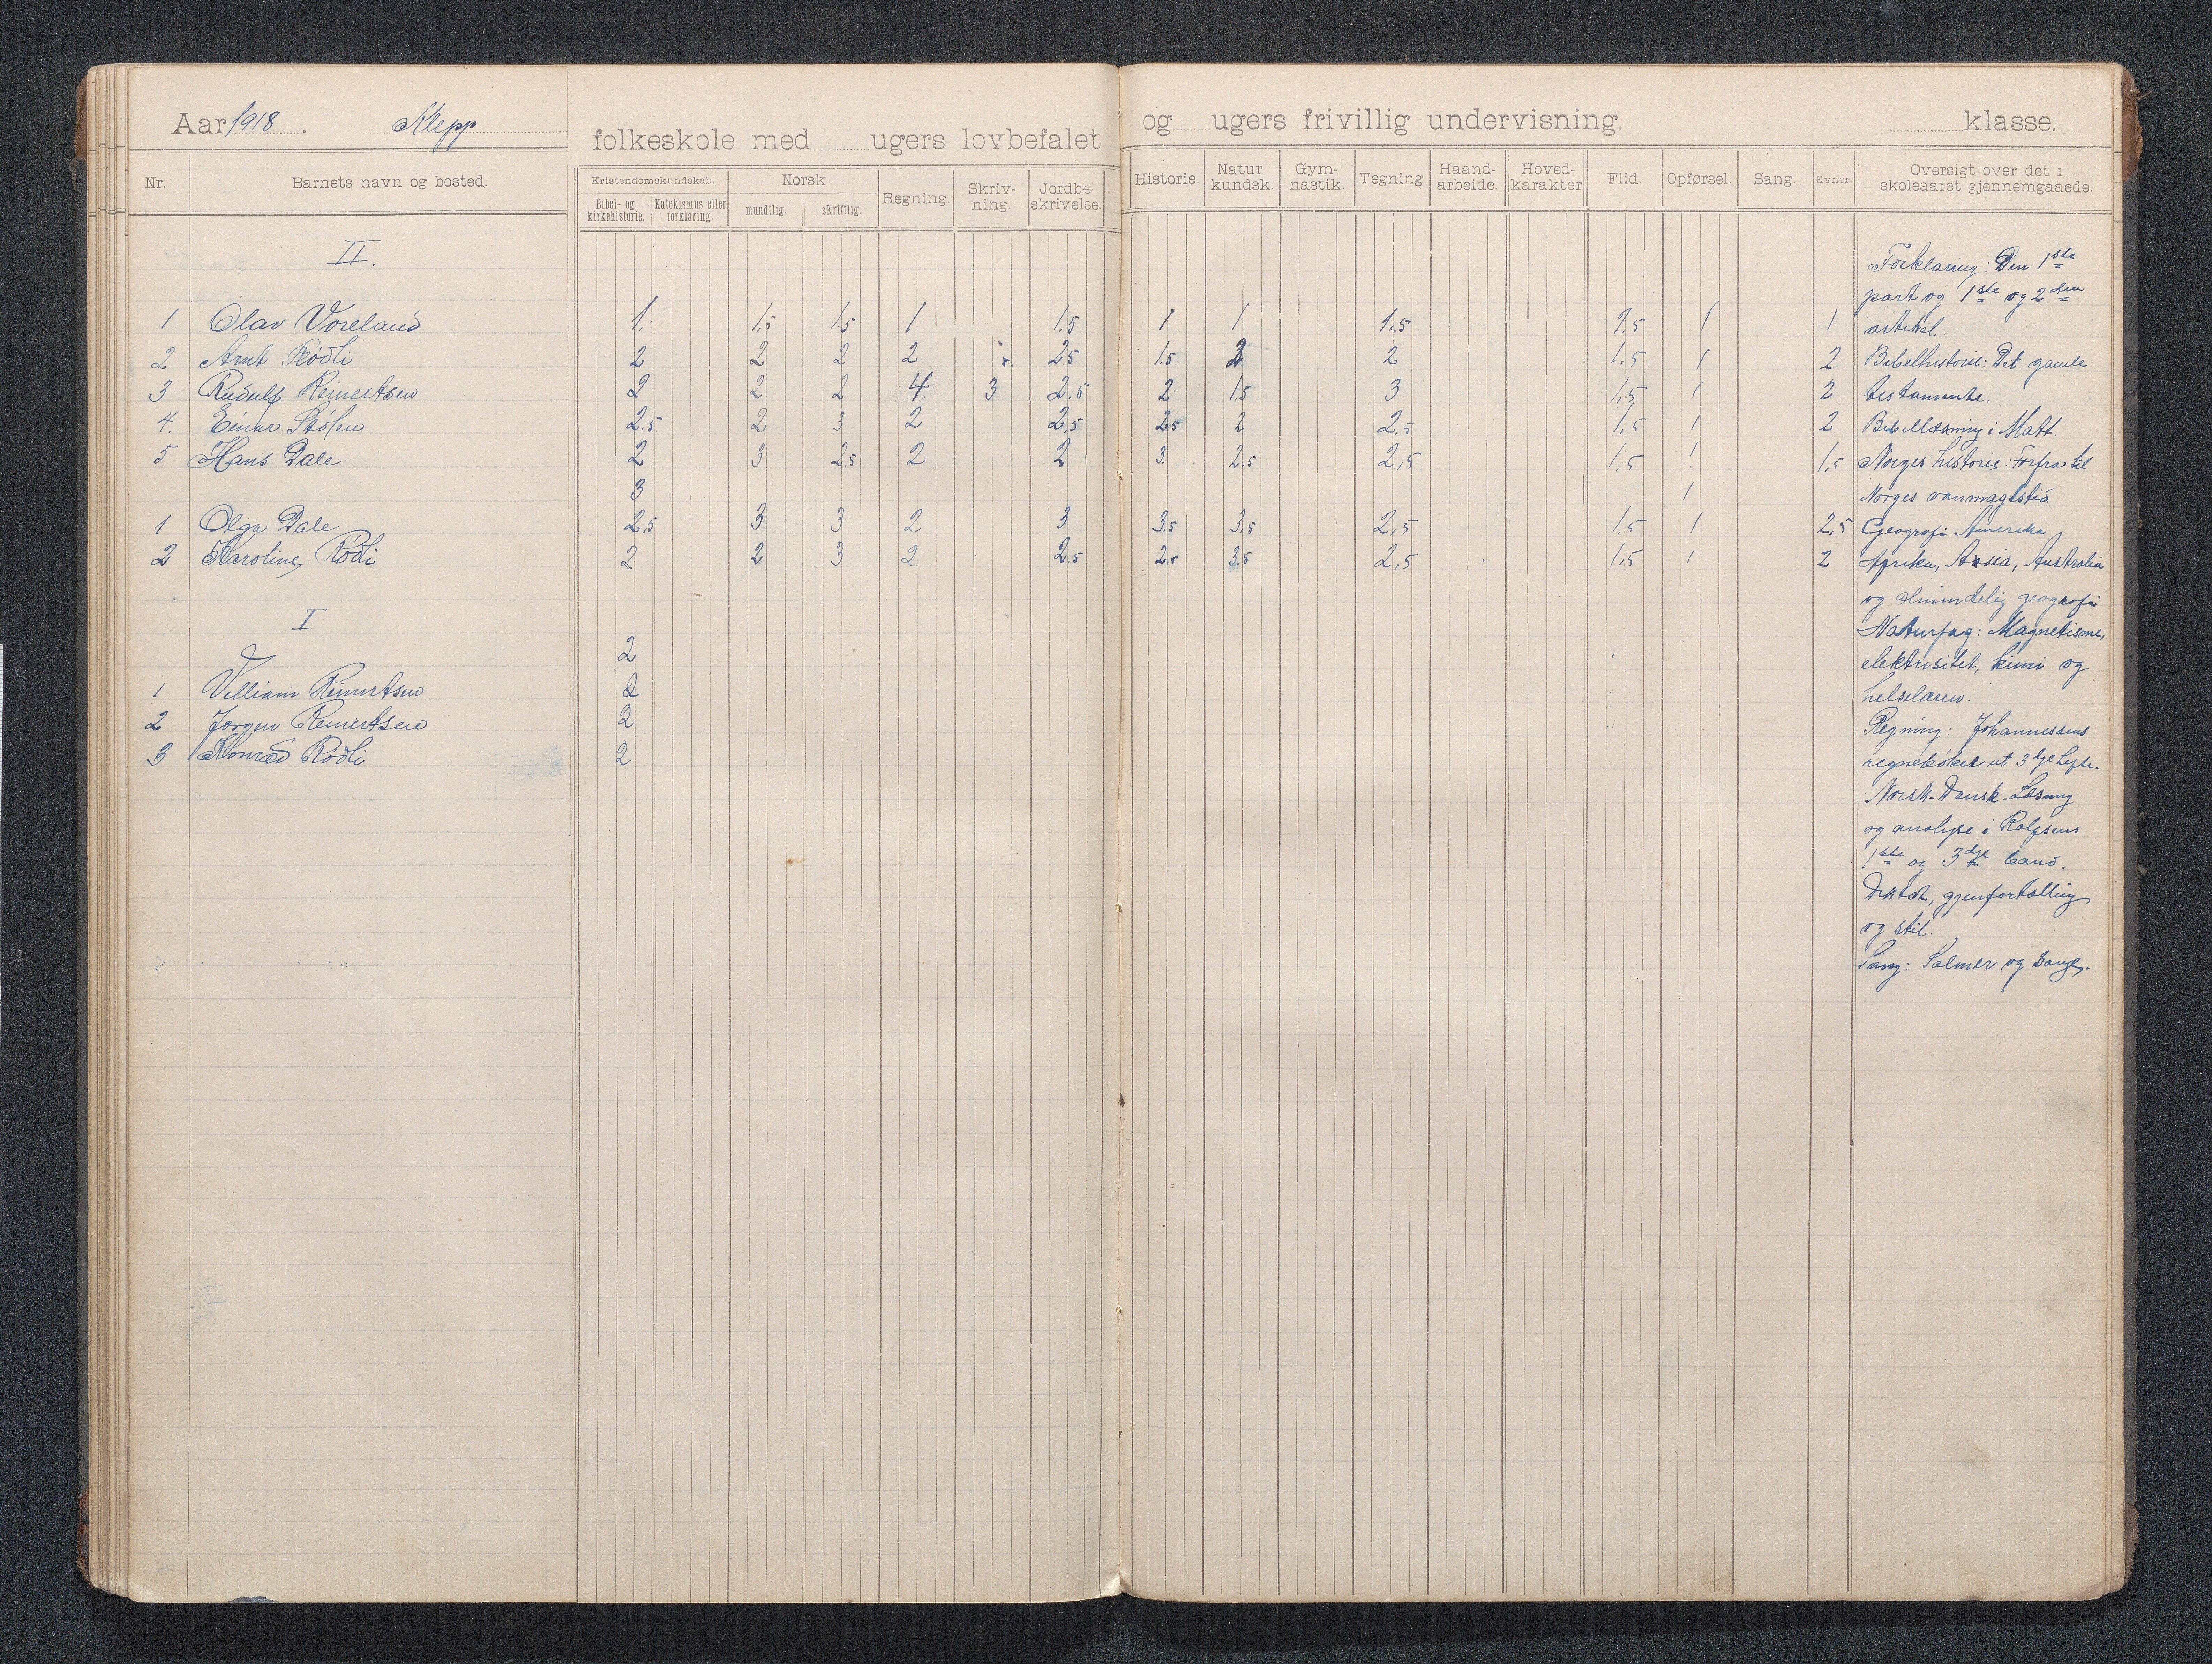 Aar 1918. Klepp folkeskole med ugers lovbefalet og ugers frivillig undervisning. klasse.
Nr. Barnets navn og bosted. Kristendomskundskab. Bibel- og kirkehistorie. Katekismus eller forklaring. Norsk mundtlig. skriftlig. Regning. Skriv-ning. Jordbe-skrivelse. Historie. Natur kundsk. Gym-nastik. Tegning Haand-arbeide. Hoved-karakter Flid. Opførsel. Sang. Evner Oversigt over det i skoleaaret gjennemgaaede.
II.
1 Olav Voreland 1. 1,5 1,5 1 1,5 1 1 1,5 1,5 1 1
2 Arnt Rödli 2 2 2 2 2,5 1,5 2 2 1,5 1 2
3 Rudulf Reinertsen 2 2 2 4 3 2.5 2 1.5 3 1,5 1 2
4. Einar Stólen 2.5 2 3 2 2,5 2,5 2 2,5 1,5 1 2
5 Hans Dale 2 3 2.5 2 2 3. 2.5 2,5 1,5 1 1,5
3 1
1 Olga Dale 2,5 3 3 2 3 3.5 3.5 2,5 1,5 1 2,5
2 Karoline Rödli 2 2 3 2 2.5 2.5 3,5 2,5 1,5 1 2
I
2
1 Villiam Reinertsen 2
2 Jørgen Reinertsen 2
3 Konrad Rödli 2
Forklaring: Den 1ste
part og 1ste og 2den
artikel.
Bibelhistorie: Det gamle
testamente.
Bibellæsning i Matt.
Norges historie: Forfra til
Norges vanmagtstid
Geografi Amerika
Afrika, Asia, Australia
og almindelig geografi
Naturfag: Magnetisme,
elektrisitet, kimi og
helselæren.
Regning: Johannessens
regnebøker ut 3dje hefte.
Norsk-Dansk-Læsning
og analyse i Rolfsens
1ste og 3dje band.
Diktat, gjenfortælling
og stil.
Sang: Salmer og sange.